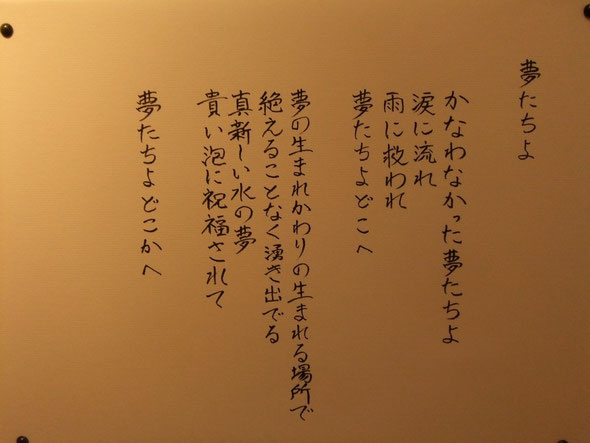 夢たちよ
かなわなかった夢たちよ
涙に流れ
雨に救われ
夢たちよどこへ
夢の生まれかわりの生まれる場所で
絶えることなく湧き出でる
真新しい水の夢
貴い泡に祝福されて
夢たちよどこかへ